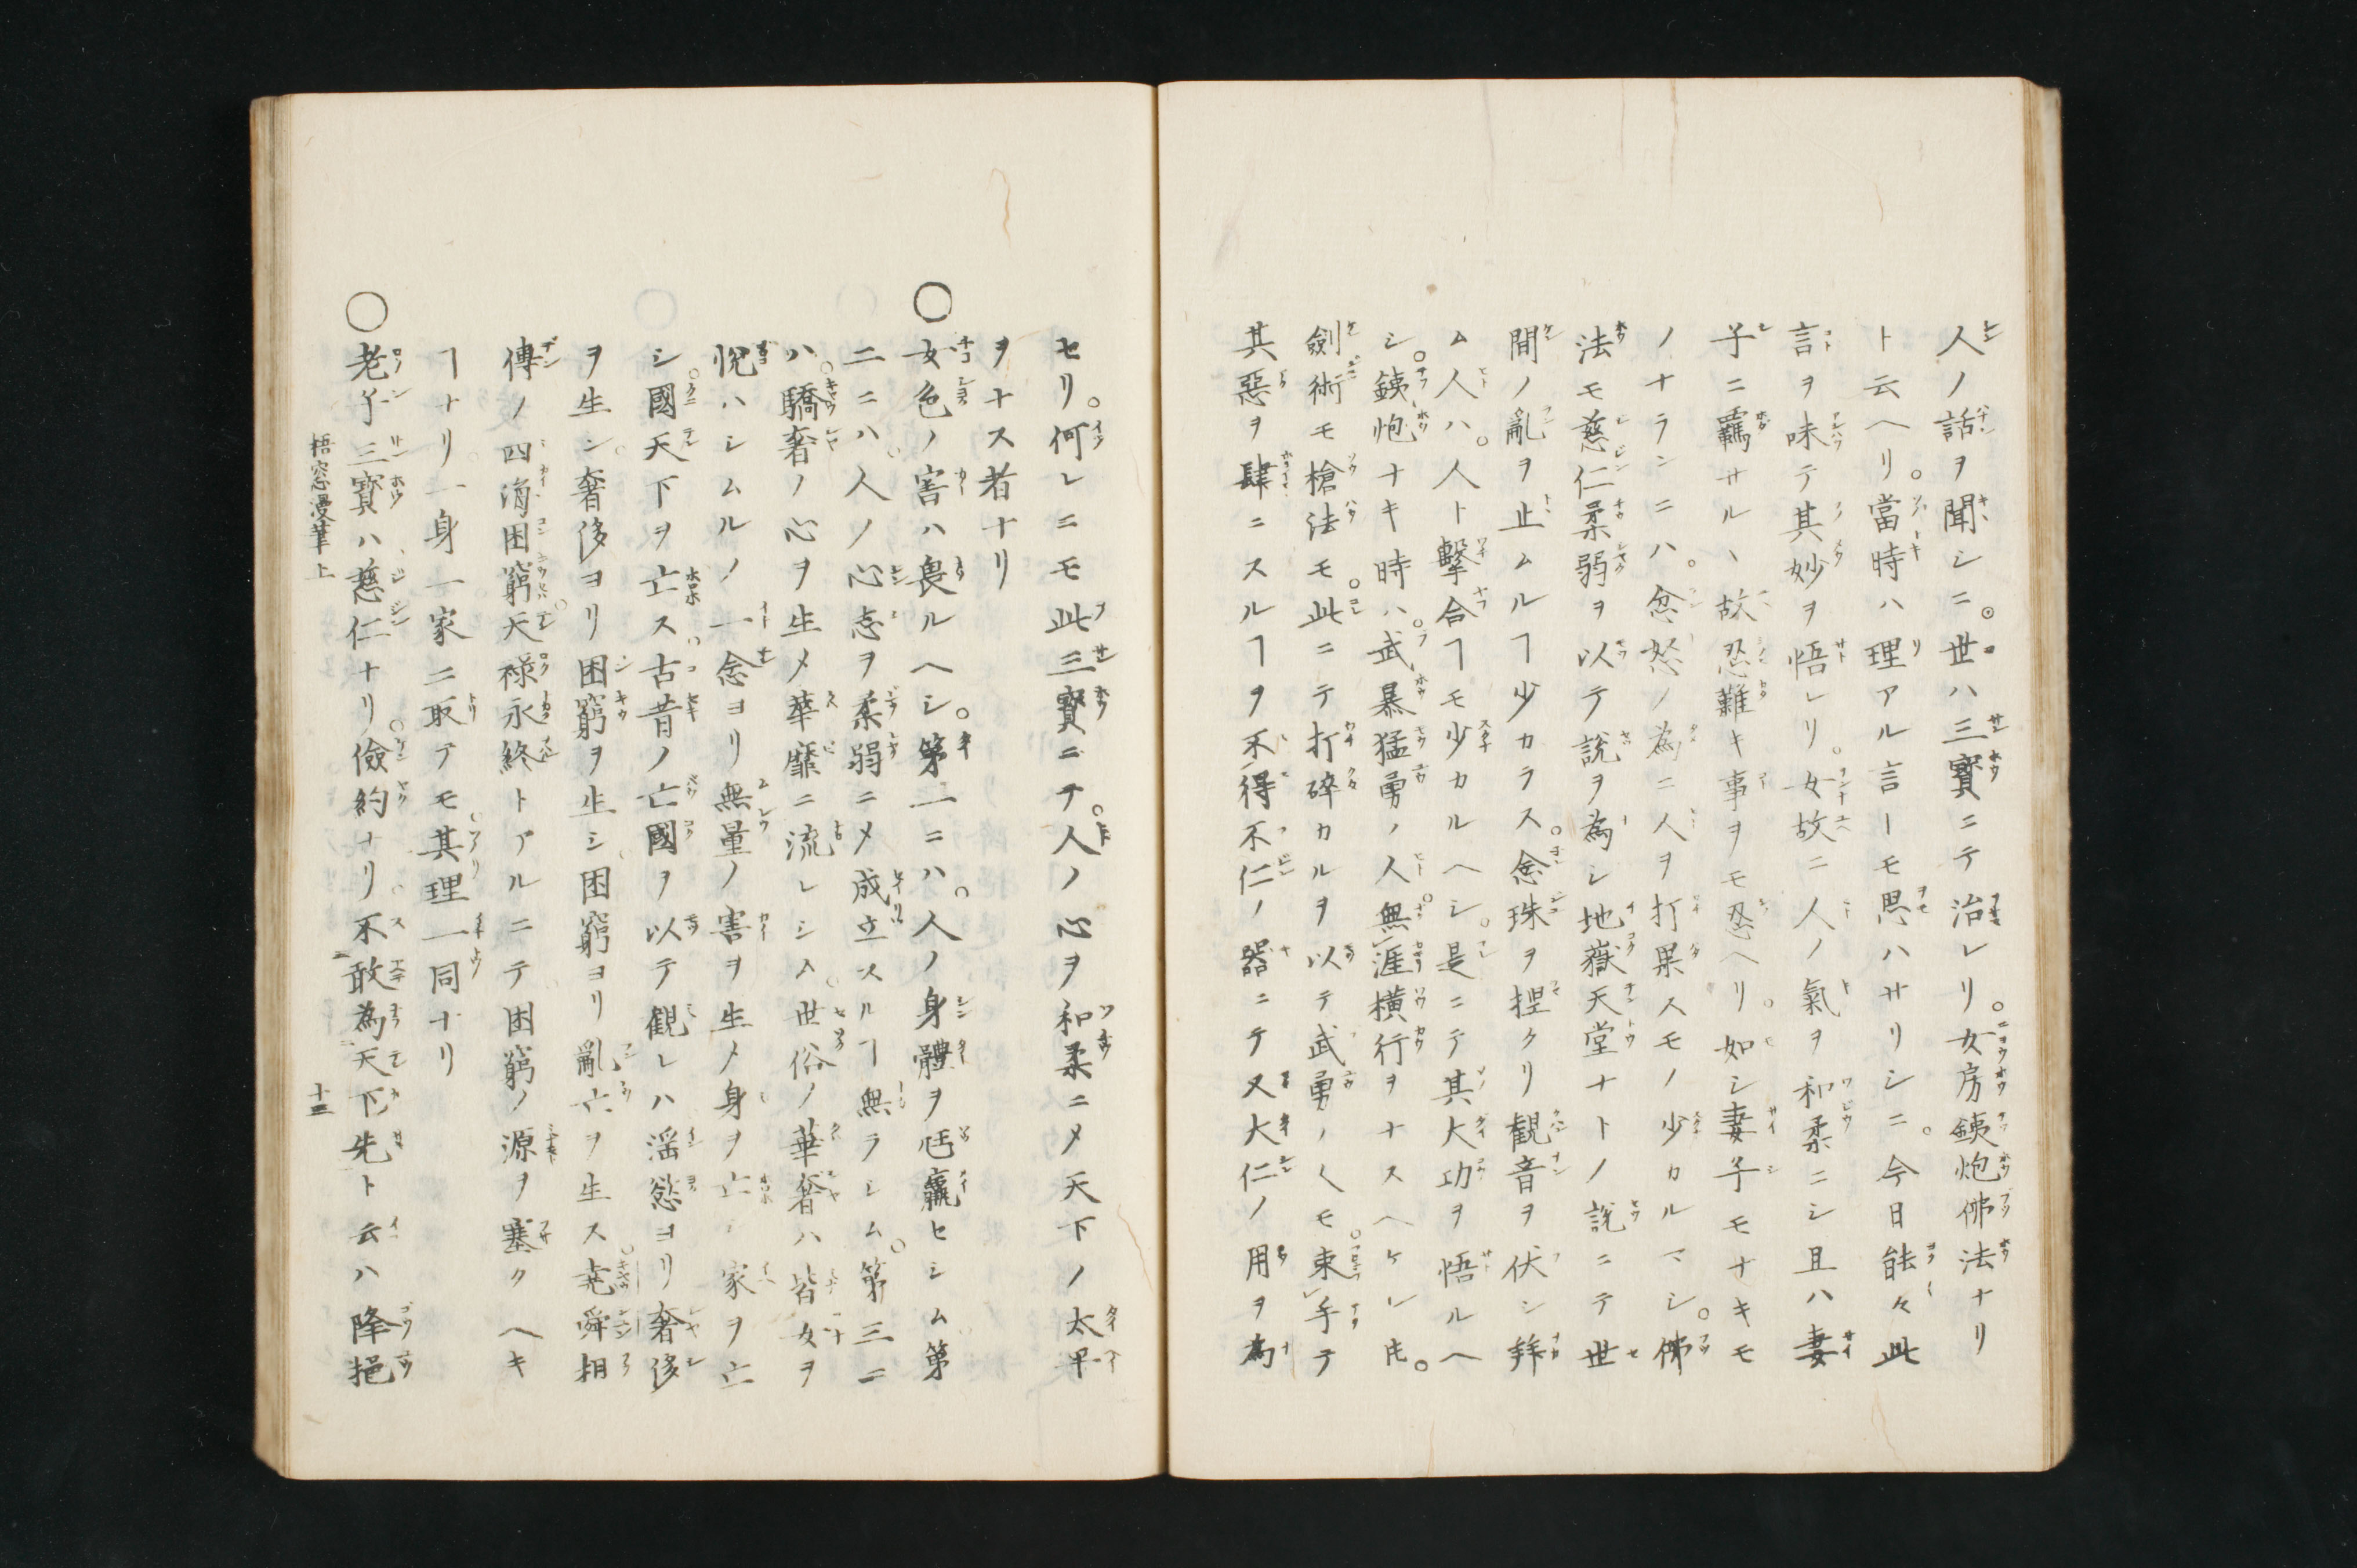 人ノ話ヲ聞シニ。世ハ三寳ニテ治レリ。女房鉄炮佛法ナリ
ト云ヘリ。當時ハ理アル言トモ思ハサリシニ。今日能々此
言ヲ味テ其妙ヲ悟レリ。女故ニ人ノ氣ヲ和柔ニシ且ハ妻
子ニ羈サルヽ故忍難キ事ヲモ忍ヘリ。如シ妻子モナキモ
ノナランニハ。忿怒ノ為ニ人ヲ打果スモノ少カルマシ。佛
法モ慈仁柔弱ヲ以テ説ヲ為シ地嶽天堂ナトノ説ニテ世
間ノ亂ヲ止ムルヿ少カラス。念珠ヲ揑クリ觀音ヲ伏シ拜
ム人ハ。人ト擊合ヿモ少カルヘシ。是ニテ其大功ヲ悟ルヘ
シ。銕炮ナキ時ハ。武暴猛勇ノ人。無涯横行ヲナスヘケレ𪜈。
劍術モ槍法モ。此ニテ打碎カルヲ以テ武勇ノ人モ。束手テ
其惡ヲ肆ニスルヿヲ不得不仁ノ器ニテ又大仁ノ用ヲ為
セリ。何レニモ此三寳ニテ。人ノ心ヲ和柔ニメ天下ノ太平
ヲナス者ナリ
○女色ノ害ハ畏ルヘシ。第一ニハ。人ノ身體ヲ尫羸セシム第
二ニハ。人ノ心志ヲ柔弱ニメ成立スルヿ無ラシム。第三ニ
ハ。驕奢ノ心ヲ生メ華靡ニ流レシム。世俗ノ華奢ハ皆女ヲ
悅ハシムルノ一念ヨリ無量ノ害ヲ生メ身ヲ亡シ家ヲ亡
シ。國天下ヲ亡ス。古昔ノ亡國ヲ以テ觀レハ淫慾ヨリ奢侈
ヲ生シ。奢侈ヨリ困窮ヲ生シ困窮ヨリ亂亡ヲ生ス。堯舜相
傳ノ四海困窮。天禄永終トアルニテ困窮ノ源ヲ塞クヘキ
ヿナリ。一身一家ニ取テモ。其理一同ナリ
○老子三寳ハ慈仁ナリ。儉約ナリ。不敢為天下先ト云ハ降挹
梧窓漫筆上
十三